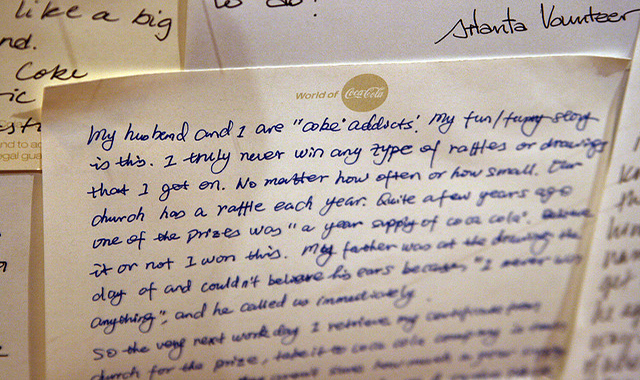 like a big
nd.
Coke
ic
to do!
Atlanta Vounteer
World of Coca-Cola
My husband and I are "coke addicts". My fun/funny story
is this. I truly never win any type of raffles or drawings
that I get on. No matter how often or how small. Our
church has a raffle each year. Quite a few years ago
one of the prizes was "a year supply of coca cola". Believe
it or not I won this. My father was at the drawing the
day of and couldn't beleave his ears because "I never win
anything", and he called us immediately.
So the very next work day I retrieve my certificate from
church for the prize, take it to coca cola company
sure how much a year